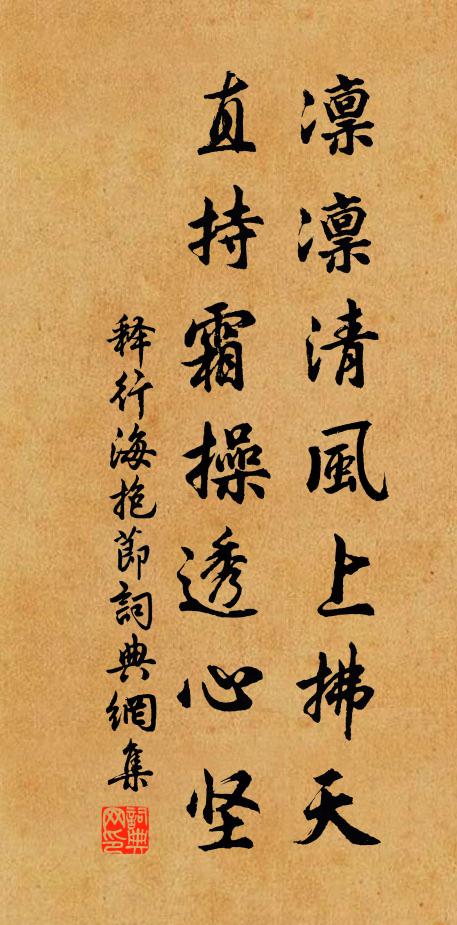 凛凛清風上拂天
直持霜操透心坚
释行海抱節詞典網集
詞典網印